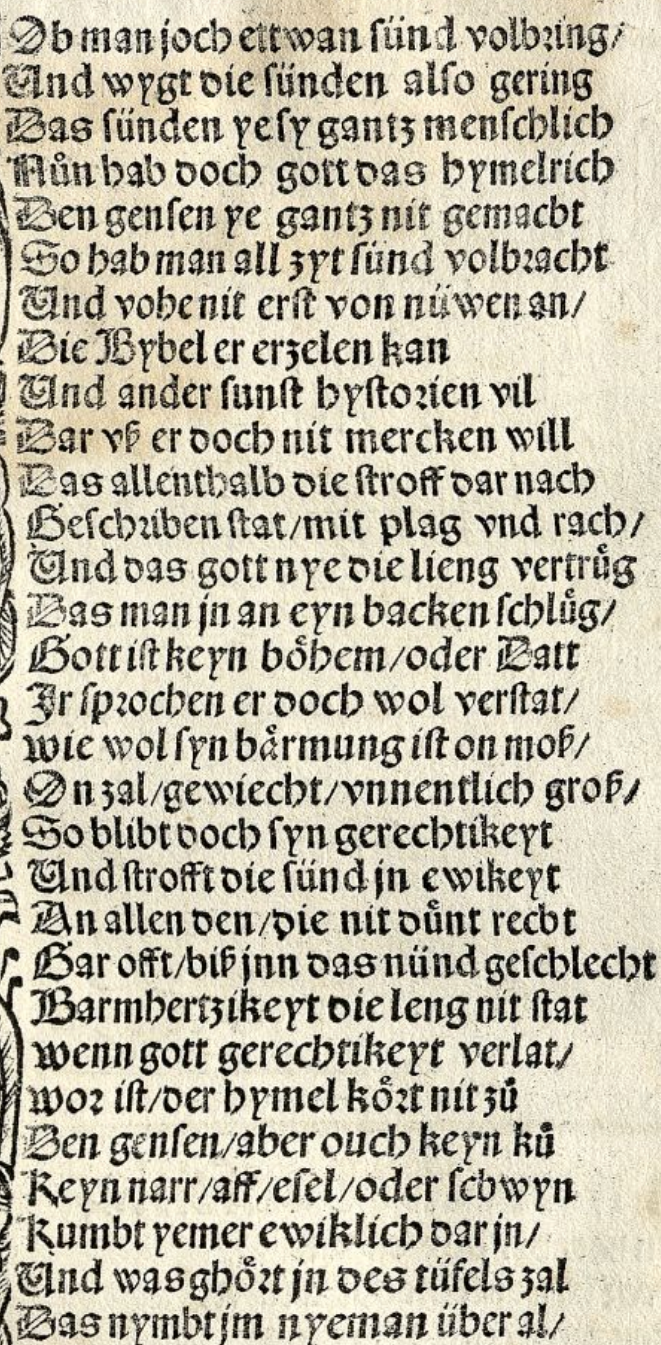 Ob man joch ettwan sünd volbring/
Und wygt die sünden also gering
Das sünden ye sy gantz menschlich
Nůn hab doch gott das hymelrich
Den gensen ye gantz nit gemacht
So hab man all zyt sünd volbracht
Und vohe nit erst von nüwen an/
Die Bybel er erzelen kan
Und ander sunst hystorien vil
Dar vß er doch nit mercken will
Das allenthalb die stroff dar nach
Geschriben stat/mit plag vnd rach/
Und das gott nye die lieng vertrůg
Das man jn an eyn backen schlůg/
Gott ist keyn bo̊hem/oder Datt
Jr sprochen er doch wol verstat/
wie wol syn bårmung ist on moß/
On zal/gewiecht/vnnentlich groß/
So blibt doch syn gerechtikeyt
Und strofft die sünd jn ewikeyt
An allen den/die nit du̇nt recht
Gar offt/biß jnn das nünd geschlecht
Barmhertzikeyt die leng nit stat
wenn gott gerechtikeyt verlat/
wor ist/der hymel ko̊rt nit zů
Den gensen/aber ouch keyn ků
Keyn narr/aff/esel/oder schwyn
Kumbt yemer ewiklich dar jn/
Und was gho̊rt jn des tüfels zal
Das nymbt jm nyeman über al/